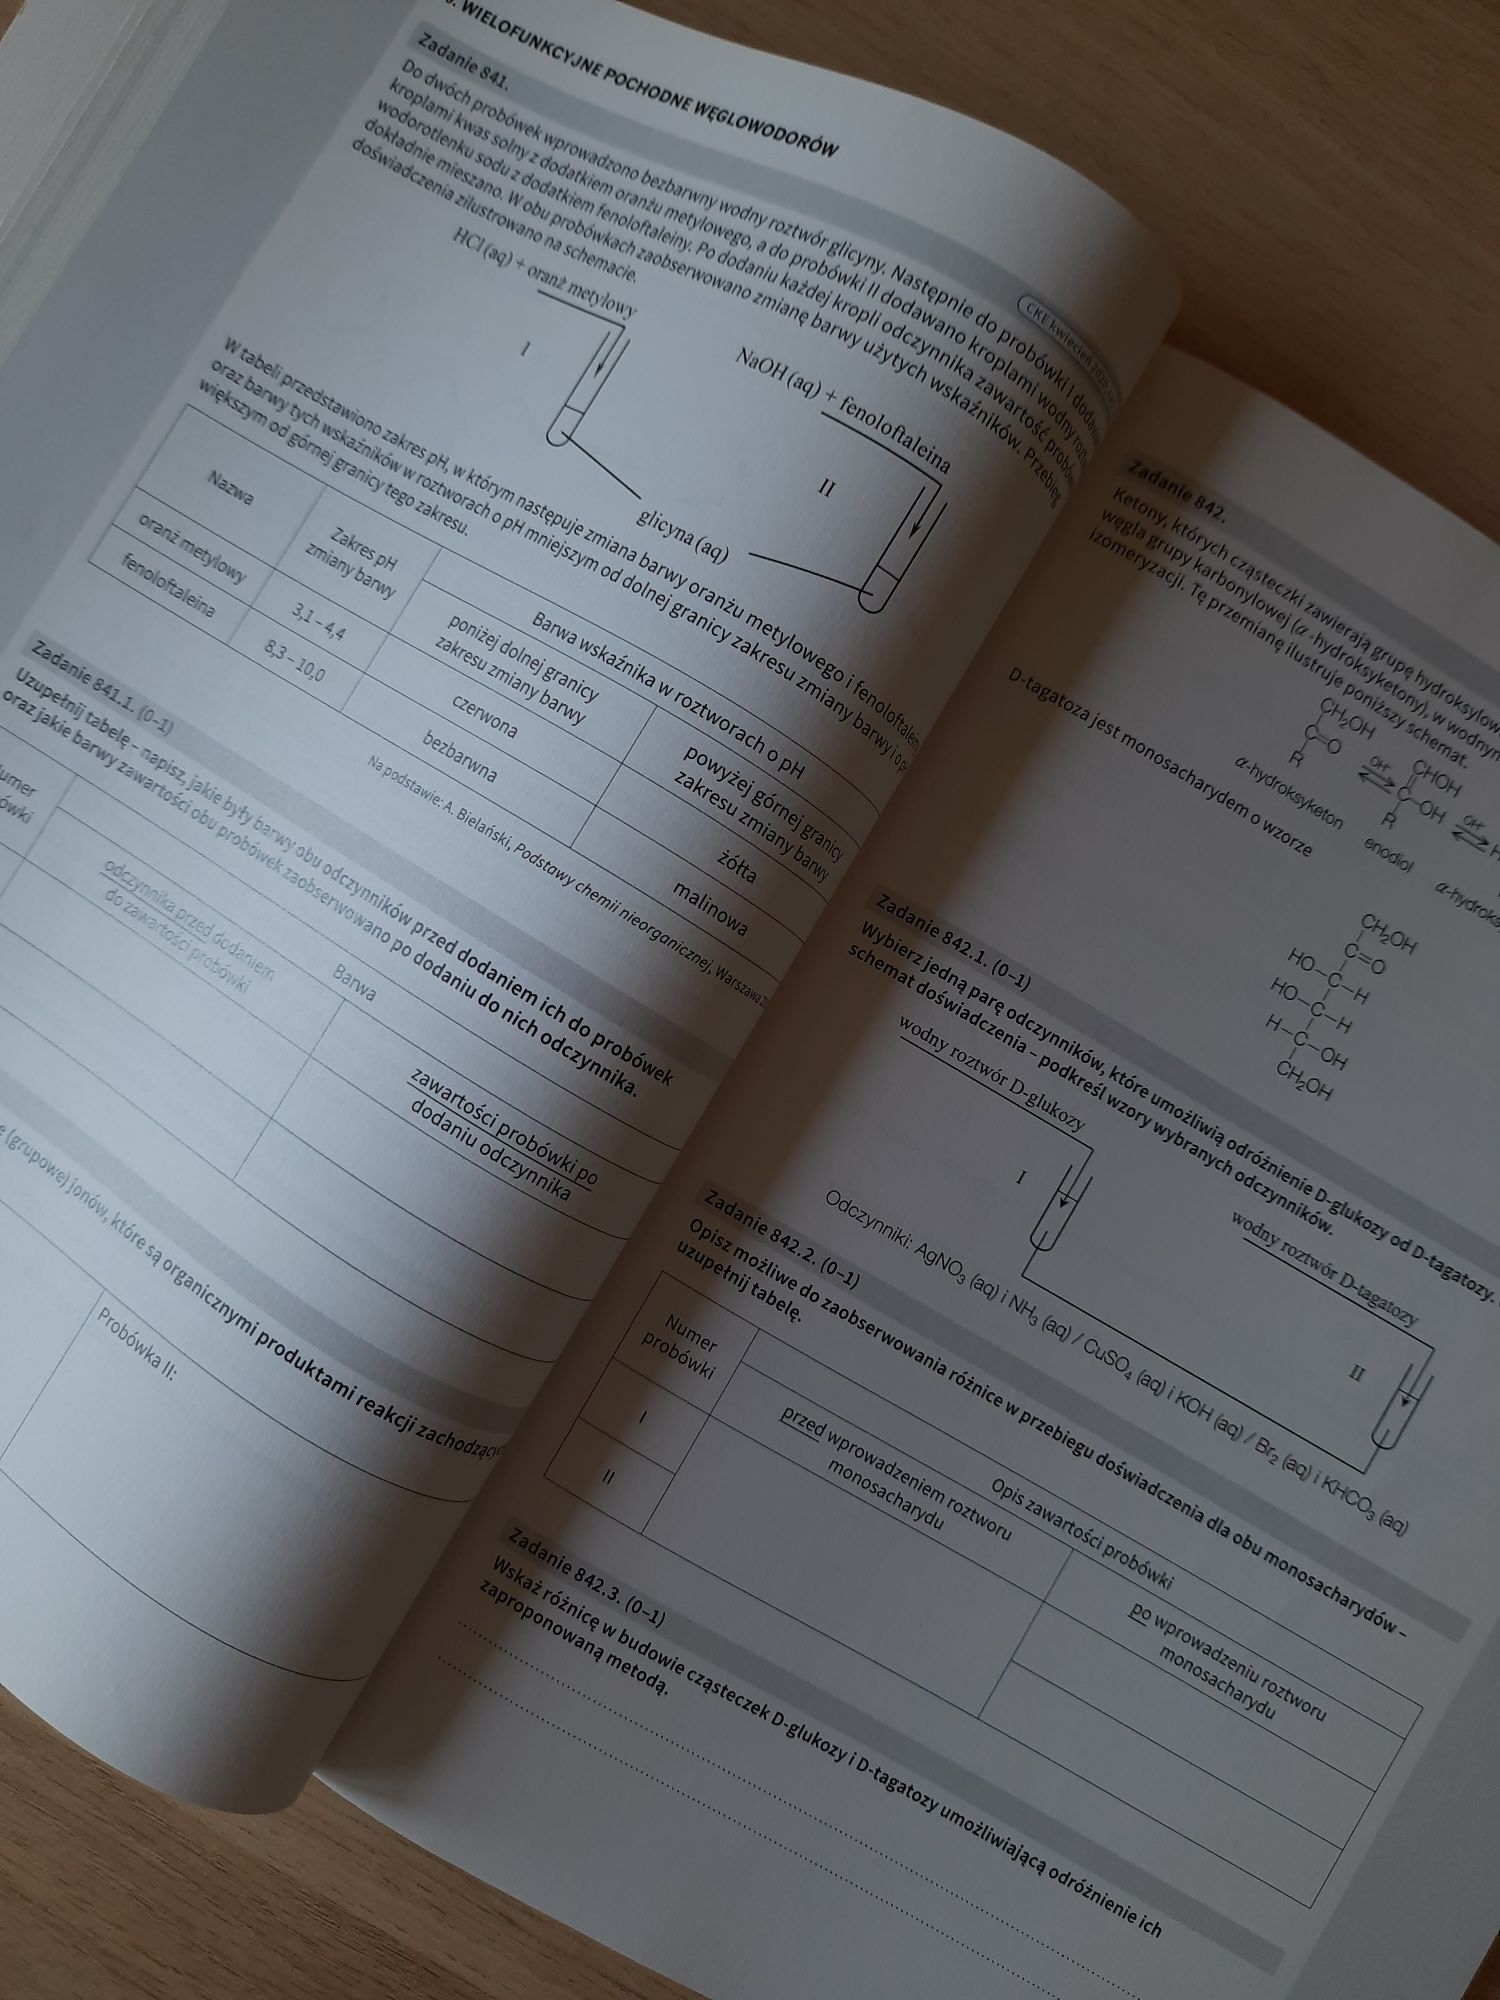 WIELOFUNKCYJNE POCHODNE WĘGLOWODORÓW
Zadanie 841.
CKE kwiecień 2020
Do dwóch probówek wprowadzono bezbarwny wodny roztwór glicyny. Następnie do probówki I
kroplami kwas solny z dodatkiem oranżu metylowego, a do probówki II dodawano kroplami wodny
wodorotlenku sodu z dodatkiem fenoloftaleiny. Po dodaniu każdej kropli odczynnika zawartość
dokładnie mieszano. W obu probówkach zaobserwowano zmianę barwy użytych wskaźników. Przebieg
doświadczenia zilustrowano na schemacie.
HCl (aq) + oranż metylowy
NaOH (aq) + fenoloftaleina
I
II
glicyna (aq)
W tabeli przedstawiono zakres pH, w którym następuje zmiana barwy oranżu metylowego i
oraz barwy tych wskaźników w roztworach o pH mniejszym od dolnej granicy zakresu zmiany barwy i o
większym od górnej granicy tego zakresu.
Nazwa
Zakres pH
zmiany barwy
Barwa wskaźnika w roztworach o pH
poniżej dolnej granicy
zakresu zmiany barwy
powyżej górnej granicy
zakresu zmiany barwy
oranż metylowy
3,1 – 4,4
czerwona
żółta
fenoloftaleina
8,3 – 10,0
bezbarwna
malinowa
Na podstawie: A. Bielański, Podstawy chemii nieorganicznej, Warszawa
Zadanie 841.1. (0–1)
Uzupełnij tabelę – napisz, jakie były barwy obu odczynników przed dodaniem ich do probówek
oraz jakie barwy zawartości obu probówek zaobserwowano po dodaniu do nich odczynnika.
Barwa
odczynnika przed dodaniem
do zawartości probówki
zawartości probówki po
dodaniu odczynnika
(grupowe) jonów, które są organicznymi produktami reakcji
Probówka II:
Zadanie 842.
Ketony, których cząsteczki zawierają grupę
węgla grupy karbonylowej (α -hydroksyketony), w
izomeryzacji. Tę przemianę ilustruje poniższy schemat.
CH₂OH
C=O
R
OH⁻
CHOH
C–OH
R
OH⁻
α-hydroksyketon
enodiol
D-tagatoza jest monosacharydem o wzorze
CH₂OH
C=O
HO–C–H
HO–C–H
H–C–OH
CH₂OH
Zadanie 842.1. (0–1)
Wybierz jedną parę odczynników, które umożliwią odróżnienie D-glukozy od D-tagatozy.
schemat doświadczenia – podkreśl wzory wybranych odczynników.
wodny roztwór D-glukozy
wodny roztwór D-tagatozy
I
II
Odczynniki: AgNO₃ (aq) i NH₃ (aq) / CuSO₄ (aq) i KOH (aq) / Br₂ (aq) i KHCO₃ (aq)
Zadanie 842.2. (0–1)
Opisz możliwe do zaobserwowania różnice w przebiegu doświadczenia dla obu monosacharydów –
uzupełnij tabelę.
Numer
probówki
Opis zawartości probówki
przed wprowadzeniem roztworu
monosacharydu
po wprowadzeniu roztworu
monosacharydu
I
II
Zadanie 842.3. (0–1)
Wskaż różnicę w budowie cząsteczek D-glukozy i D-tagatozy umożliwiającą odróżnienie ich
zaproponowaną metodą.